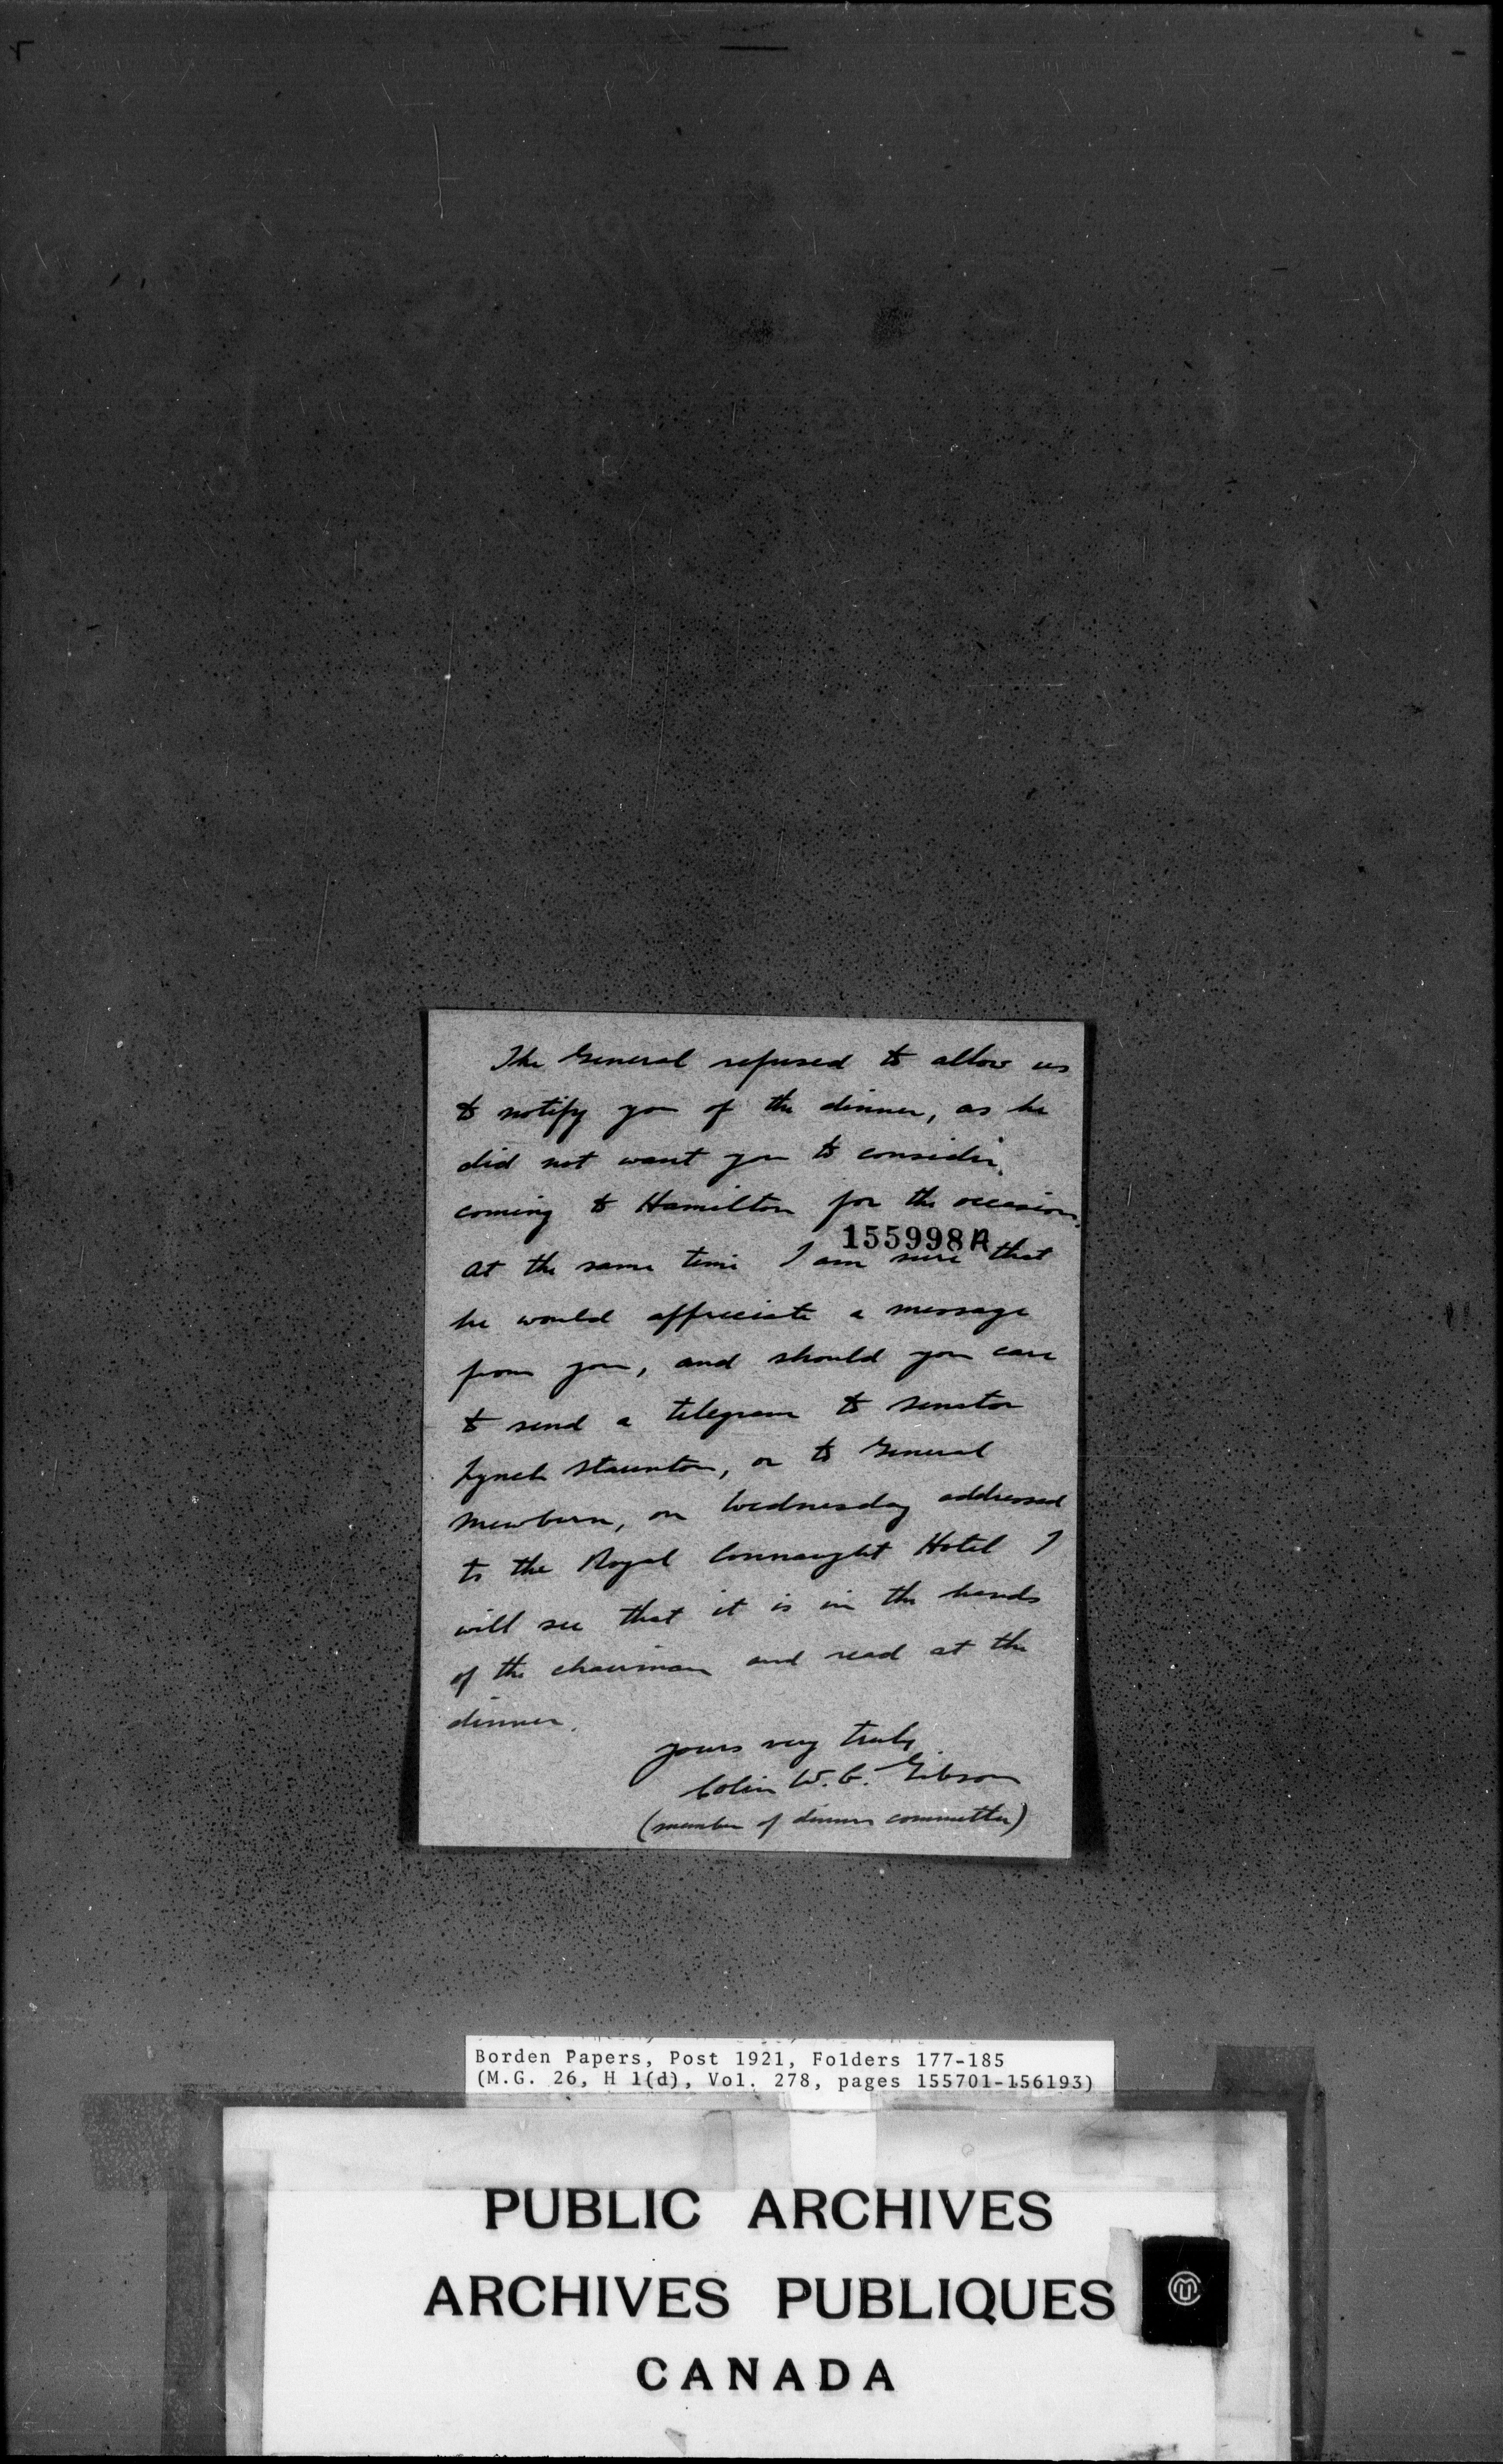 The General refused to allow us
to notify you of the dinner, as he
did not want you to consider
coming to Hamilton for the occasion.
155998A
At the same time I am sure that
he would appreciate a message
from you, and should you care
to send a telegram to Senator
Lynch Staunton, or to General
Mewburn, on Wednesday addressed
to the Royal Connaught Hotel I
will see that it is in the hands
of the chairman and read at the
dinner.
Yours very truly
Colin W. G. Gibson
(member of dinner committee)
Borden Papers, Post 1921, Folders 177-185
(M.G. 26, H 1(d), Vol. 278, pages 155701-156193)
PUBLIC ARCHIVES
ARCHIVES PUBLIQUES
CANADA